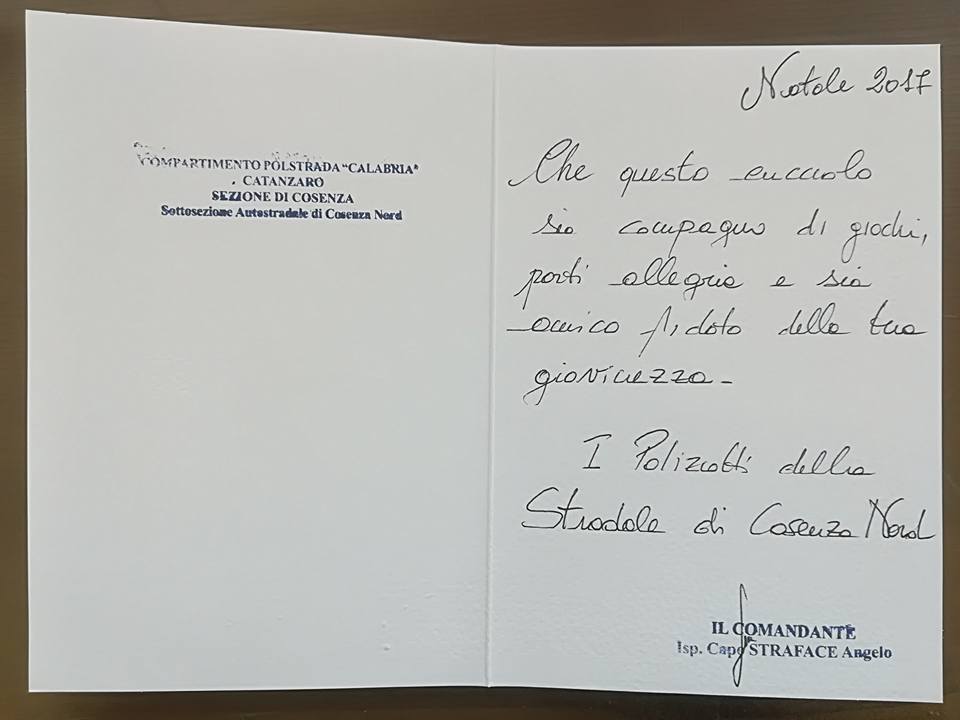 COMPARTIMENTO POLSTRADA "CALABRIA"
CATANZARO
SEZIONE DI COSENZA
Sottosezione Autostradale di Cosenza Nord
Natale 2017
Che questo cucciolo
sia compagno di giochi,
porti allegria e sia
amico fidato della tua
giovinezza-
I Poliziotti della
Stradale di Cosenza Nord
IL COMANDANTE
Isp. Capo STRAFACE Angelo